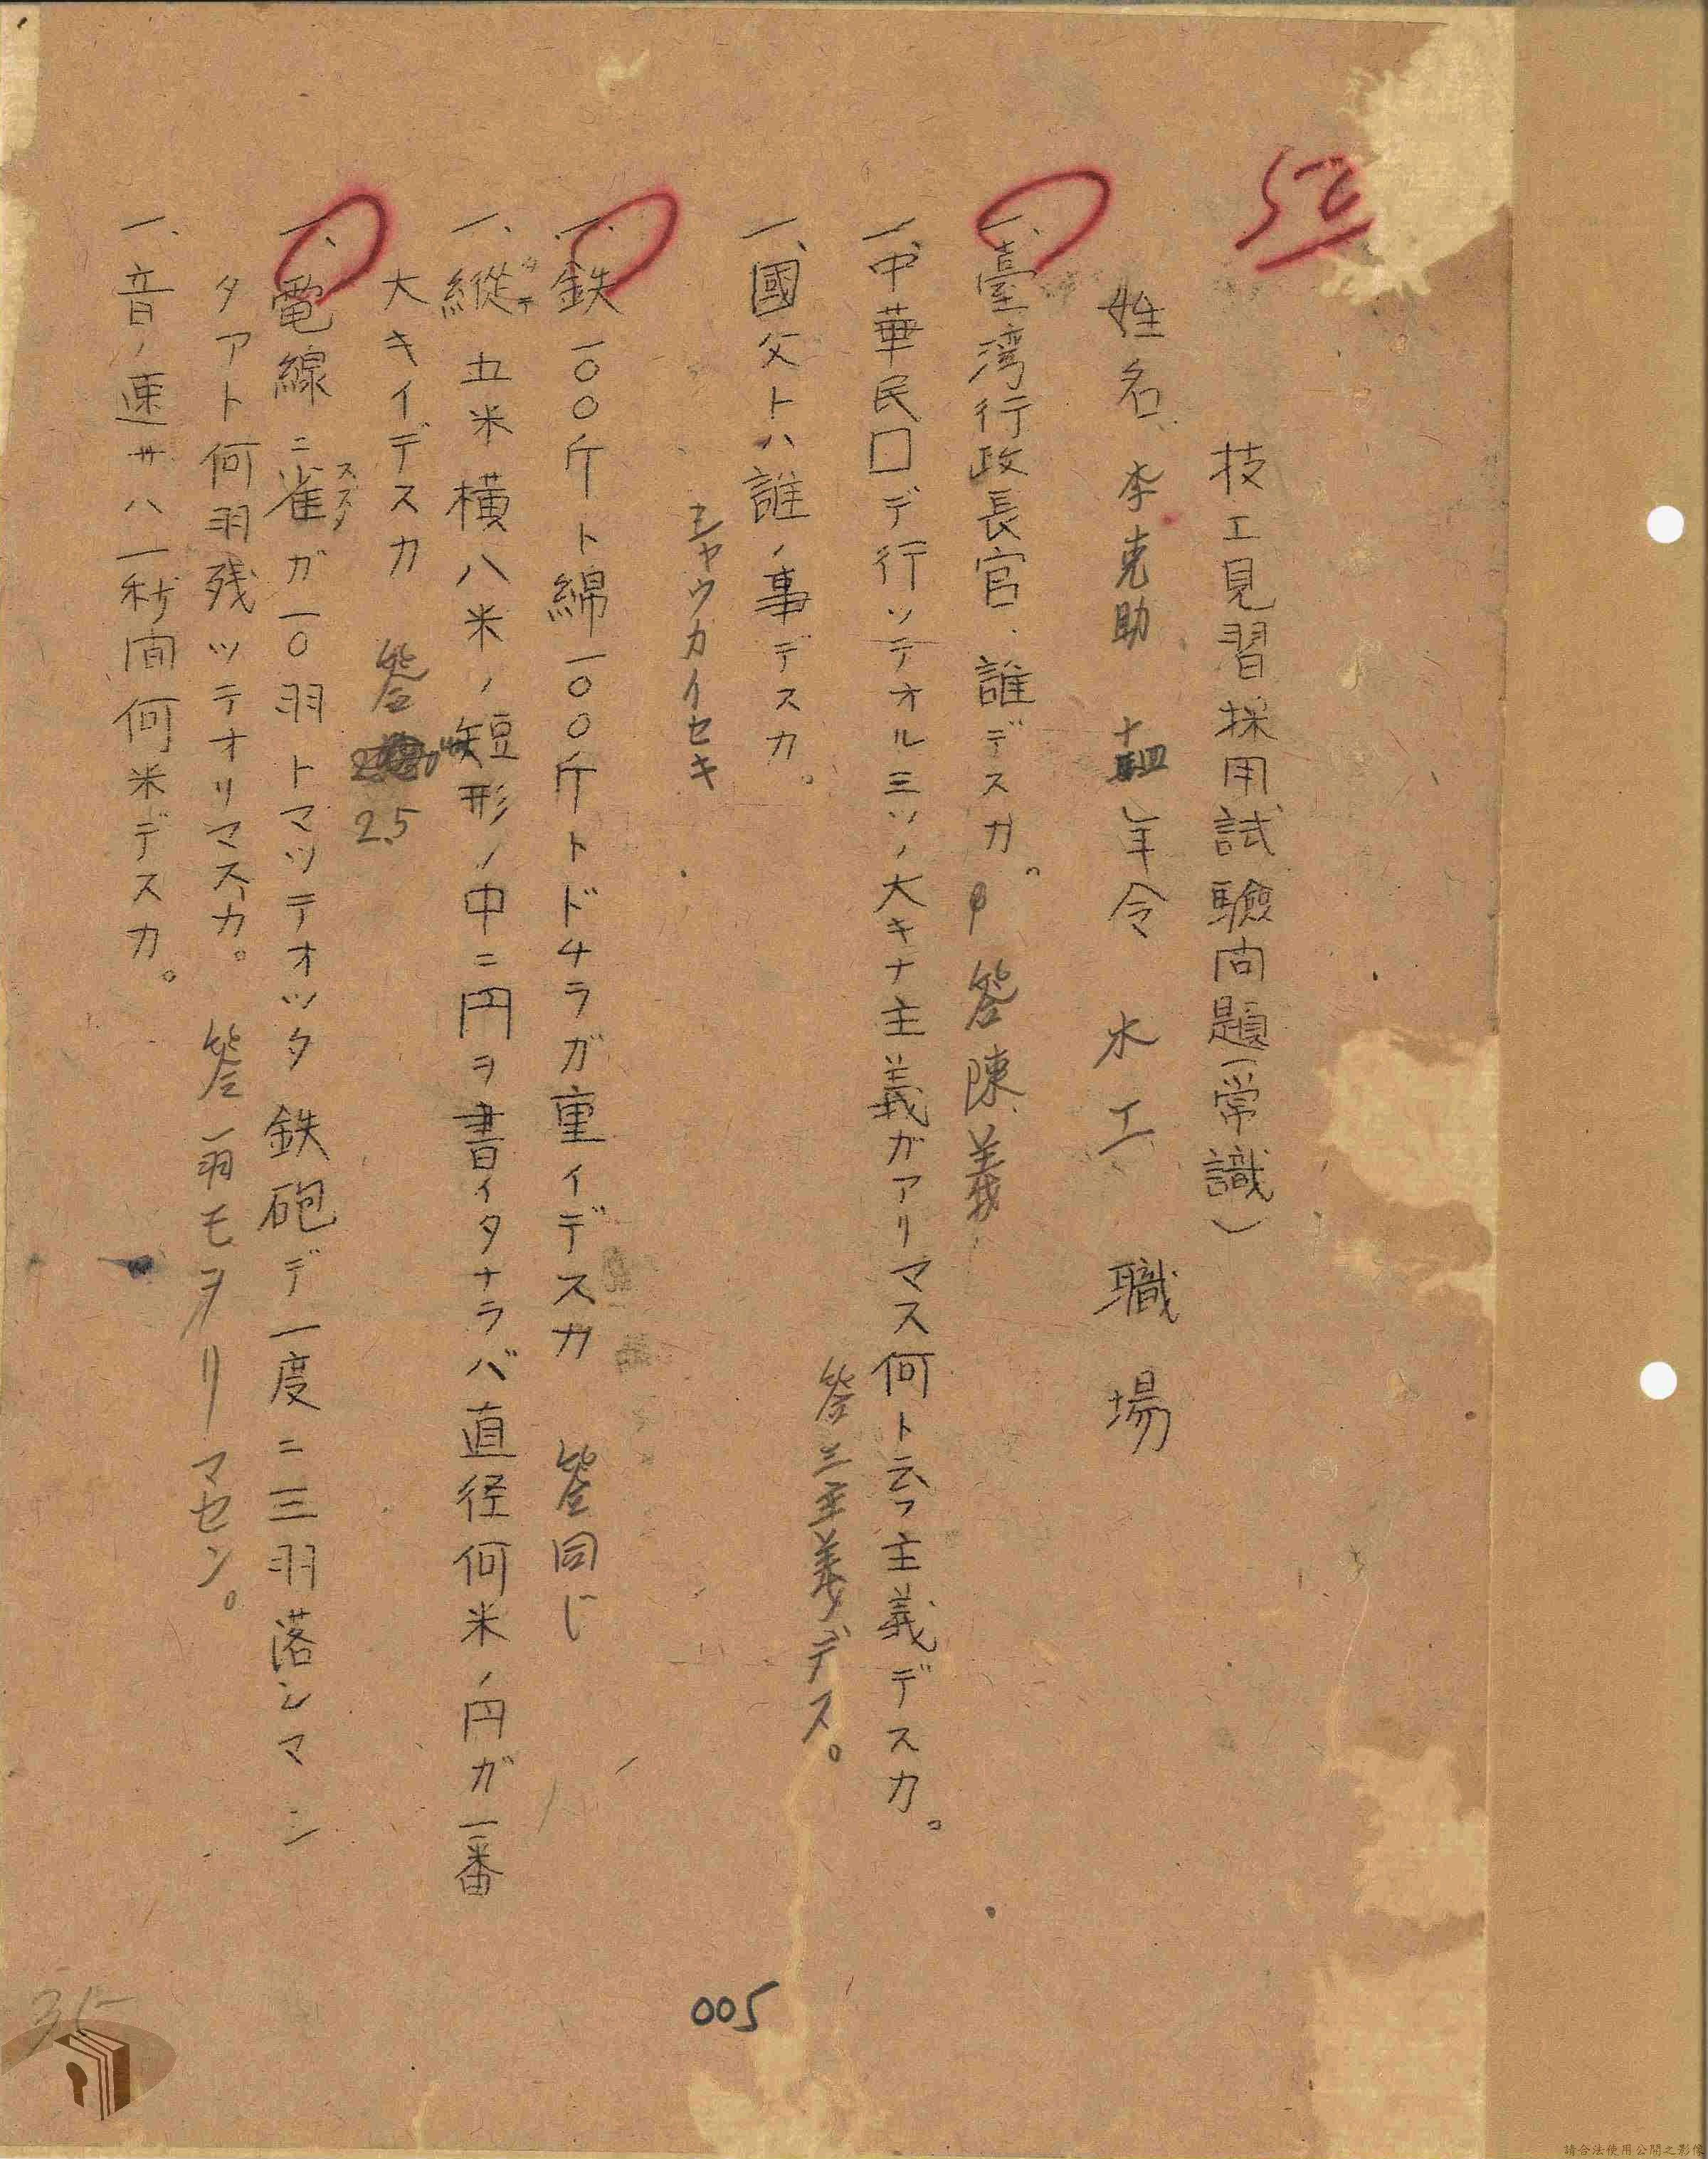 技工見習採用試驗問題(常識)
姓名 李克助 十四 年令 木工 職場
一、臺湾行政長官ハ誰デスカ。 答 陳義
一、中華民口デ行ツテオル三ツノ大キナ主義ガアリマス何ト云フ主義デスカ。
答 三主義デス。
一、國父トハ誰ノ事デスカ。
シャウカイセキ
一、鉄一〇〇斤ト綿一〇〇斤トドチラガ重イデスカ 答 同じ
一、縱五米横八米ノ短形ノ中ニ円ヲ書イタナラバ直径何米ノ円ガ一番
タテ
大キイデスカ 答 2.5
一、電線ニ雀ガ一〇羽トマツテオツタ鉄砲デ一度ニ三羽落シマシ
スズメ
タアト何羽残ツテオリマスカ。 答 一羽モヲリマセン。
一、音ノ速サハ一秒间何米デスカ。
005
35
請合法使用公開之影像